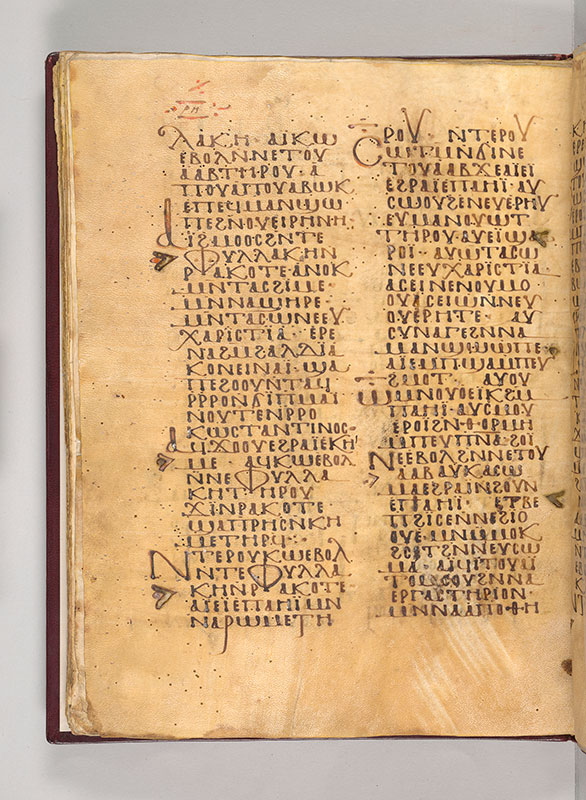 ⲣⲏ
ⲗⲁⲕⲏ · ⲁⲓⲕⲱ
ⲉⲃⲟⲗⲛⲛⲉⲧⲟⲩ
ⲁⲁⲃⲧⲏⲣⲟⲩ · ⲁ
ⲡⲟⲩⲁⲡⲟⲩⲁⲃⲱⲕ
ⲉⲡⲉϥⲙⲁⲛϣⲱ
ⲡⲉϩⲛⲟⲩⲉⲓⲣⲏⲛⲏ·
ⲁⲓ̈ϩⲙⲟⲟⲥϩⲛⲧⲉ
ⲫⲩⲗⲗⲁⲕⲏⲛ
ⲣⲁⲕⲟⲧⲉ·ⲁⲛⲟⲕ
ⲙⲛⲧⲁⲥϩⲓⲙⲉ·
ⲙⲛⲛⲁϣⲏⲣⲉ·
ⲙⲛⲧⲁⲥⲱⲛⲉⲉⲩ
ⲭⲁⲣⲓ̈ⲥⲧⲓ̈ⲁ · ⲉⲣⲉ
ⲛⲁϩⲙϩⲁⲗⲇⲓ̈ⲁ
ⲕⲟⲛⲉⲓⲛⲁⲓ̈·ϣⲁ
ⲡⲉϩⲟⲟⲩⲛⲧⲁϥ
ⲣⲣⲣⲟⲛϭⲓⲡⲙⲁⲓ̈
ⲛⲟⲩⲧⲉⲛⲣⲣⲟ
ⲕⲱⲥⲧⲁⲛⲧⲓⲛⲟⲥ·
ⲁϥϫⲟⲟⲩⲉϩⲣⲁⲓ̈ⲉⲕⲏ
ⲙⲉ · ⲁϥⲕⲱⲉⲃⲟⲗ
ⲛⲛⲉⲫⲩⲗⲗⲁ
ⲕⲏⲧⲏⲣⲟⲩ
ϫⲓ̈ⲛⲣⲁⲕⲟⲧⲉ
ϣⲁⲡⲣⲏⲥⲛⲕⲏ
ⲙⲉⲧⲏⲣϥ·
ⲛⲧⲉⲣⲟⲩⲕⲱⲉⲃⲟⲗ
ⲛⲧⲉⲫⲩⲗⲗⲁ
ⲕⲏⲛⲣⲁⲕⲟⲧⲉ
ⲁⲓ̈ⲉⲓ̈ⲉⲡⲁⲏⲓ̈ⲙⲛ
ⲛⲁⲣⲱⲙⲉⲧⲏ
ⲣⲟⲩ · ⲛⲧⲉⲣⲟⲩ
ⲥⲱⲧⲙⲛϭⲓⲛⲉ
ⲧⲟⲩⲁⲁⲃϫⲉⲁⲓ̈ⲉⲓ̈
ⲉϩⲣⲁⲓ̈ⲉⲡⲁⲏⲓ̈·ⲁⲩ
ⲥⲱⲟⲩϩⲉⲛⲉⲩⲉⲣⲏⲩ
ⲉⲩⲙⲁⲛⲟⲩⲱⲧ
ⲧⲏⲣⲟⲩ·ⲁⲩⲉⲓ̈ϣⲁ
ⲣⲟⲓ̈·ⲁⲩⲱⲧⲁⲥⲱ
ⲛⲉⲉⲩⲭⲁⲣⲓ̈ⲥⲧⲓ̈ⲁ
ⲁⲥⲉⲓⲛⲉⲛⲟⲩⲙⲟ
ⲟⲩⲁⲥⲉⲓⲱⲛⲛⲉⲩ
ⲟⲩⲉⲣⲏⲧⲉ · ⲁⲩ
ⲥⲩⲛⲁⲅⲉⲛⲛⲁ
ⲙⲁⲛϣⲱⲡⲉ
ϩⲙⲟⲧ · ⲁⲩⲟⲩ
ⲡⲁⲏⲓ̈·ⲁⲩⲥⲙⲟⲩ
ⲉⲣⲟⲓ̈ϩⲛⲑⲟⲣⲙⲏ
ⲙⲡⲉⲡⲛⲁϩⲟⲓ̈
ⲛⲉⲉⲃⲟⲗϩⲛⲛⲉⲧⲟⲩ
ⲁⲁⲃⲁⲩⲕⲁⲥⲱ
ⲙⲁⲉϩⲣⲁⲓ̈ⲛϩⲟⲩⲛ
ⲉⲡⲁⲏⲓ̈ · ⲉⲧⲃⲉ
ⲡϩⲓⲥⲉⲛⲛⲉϩⲓⲟ
ⲟⲩⲉ·ⲙⲛⲡⲙⲟⲕ
ϩⲥϩⲧϩⲛⲛⲉⲩⲥⲱ
ⲙⲁ·ⲁⲓ̈ϥⲓⲧⲟⲩⲁⲓ̈
ⲧⲟⲙⲥⲟⲩϩⲛⲛⲁ
ⲉⲣⲅⲁⲥⲧⲏⲣⲓⲟⲛ·
ⲙⲛⲛⲁⲁⲡⲟⲑⲏ